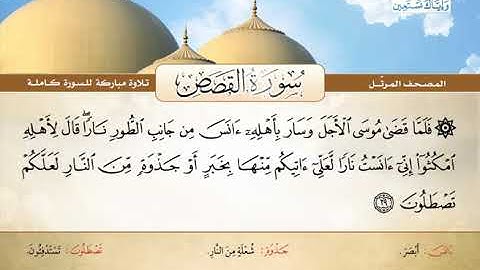 وَإِيَّاكَ نَسْتَعِين
المصحف المرتّل
سُورَةُ القَصَصِ
تلاوة مباركة للسورة كاملة
۞ فَلَمَّا قَضَىٰ مُوسَى ٱلْأَجَلَ وَسَارَ بِأَهْلِهِۦٓ ءَانَسَ مِن جَانِبِ ٱلطُّورِ نَارًا ۖ قَالَ لِأَهْلِهِ
ٱمْكُثُوٓا۟ إِنِّىٓ ءَانَسْتُ نَارًا لَّعَلِّىٓ ءَاتِيكُم مِّنْهَا بِخَبَرٍ أَوْ جَذْوَةٍ مِّنَ ٱلنَّارِ لَعَلَّكُمْ
تَصْطَلُونَ ٢٩
ءَانَسَ: أَبْصَرَ. جَذْوَةٍ: شُعْلَةٍ مِنَ النَّارِ. تَصْطَلُونَ: تَسْتَدْفِئُونَ.